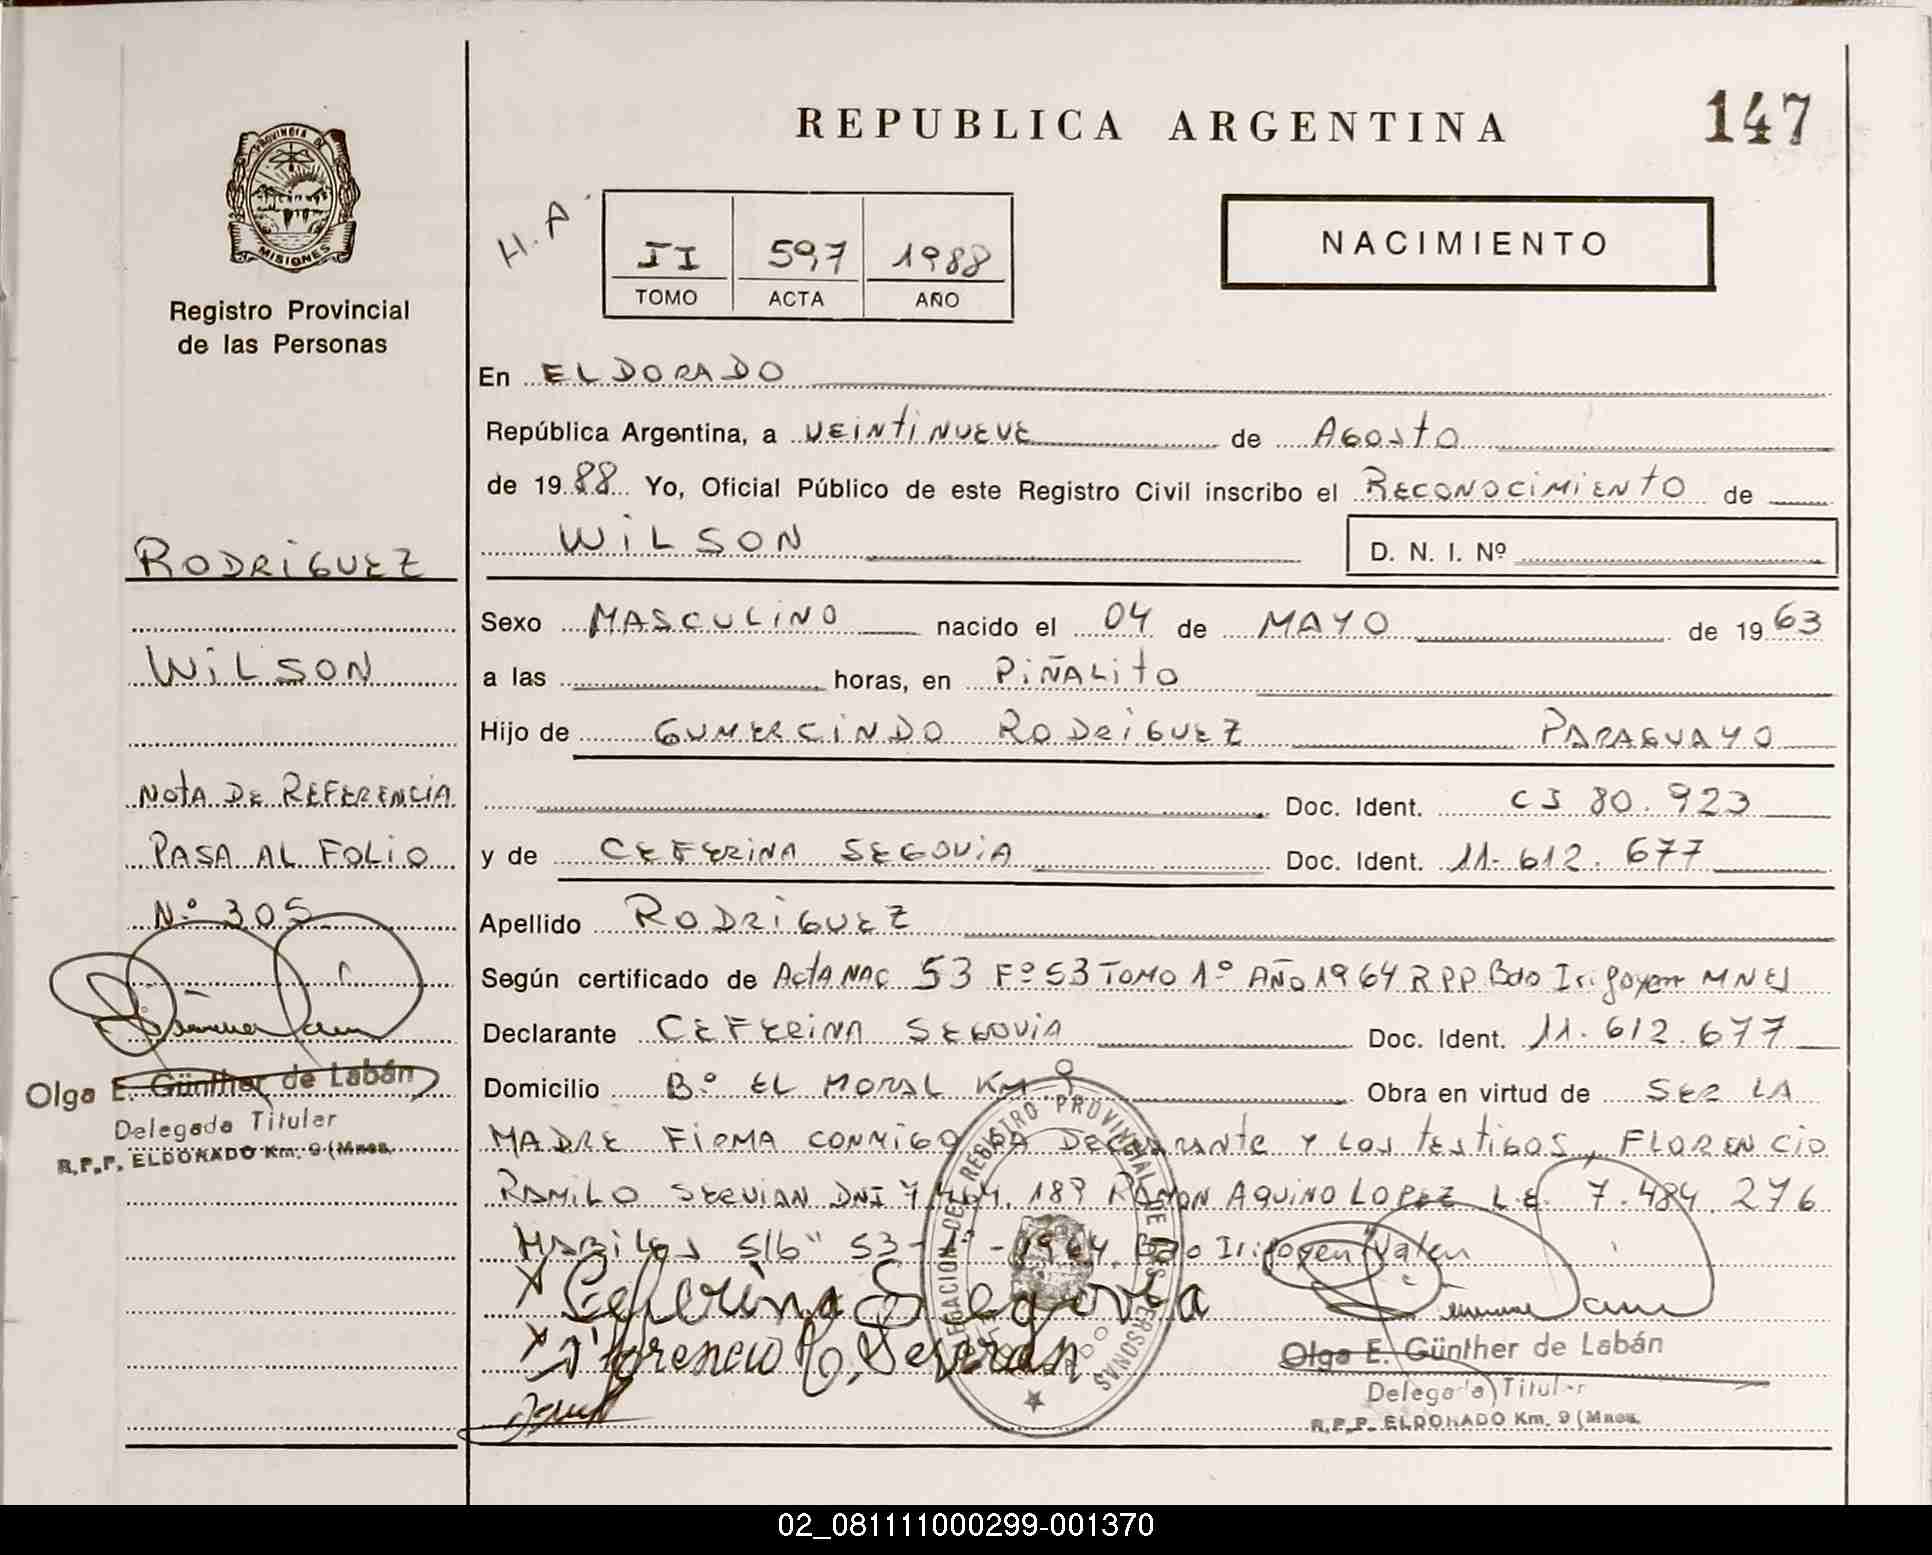 REPUBLICA ARGENTINA
147
PROVINCIA DE MISIONES
Registro Provincial
de las Personas
H. A.
II 597 1988
TOMO ACTA AÑO
NACIMIENTO
En ELDORADO
República Argentina, a VEINTINUEVE de AGOSTO
de 1988 Yo, Oficial Público de este Registro Civil inscribo el RECONOCIMIENTO de
WILSON
D. N. I. Nº
RODRIGUEZ
WILSON
NOTA DE REFERENCIA
PASA AL FOLIO
Nº 305
Olga E. Günther de Labán
Delegada Titular
R.P.P. ELDORADO Km. 9 (Mnes.
Sexo MASCULINO nacido el 04 de MAYO de 1963
a las horas, en PIÑALITO
Hijo de GUMERCINDO RODRIGUEZ PARAGUAYO
Doc. Ident. CI 80.923
y de CEFERINA SEGOVIA Doc. Ident. 11.612.677
Apellido RODRIGUEZ
Según certificado de ACTA NAC 53 Fº 53 TOMO 1º AÑO 1964 RPP Bdo Irigoyen MNES
Declarante CEFERINA SEGOVIA Doc. Ident. 11.612.677
Domicilio Bº EL MORAL KM 9 Obra en virtud de SER LA
MADRE FIRMA CONMIGO LA DECLARANTE Y LOS TESTIGOS, FLORENCIO
RAMILO SERVIAN DNI 189 RAMON AQUINO LOPEZ L.E. 7.484.276
HABILES S/b" 53-1º-1964, Bdo Irigoyen "Valen
Ceferina Segovia
DELEGACION DEL REGISTRO PROVINCIAL DE LAS PERSONAS
Olga E. Günther de Labán
Delegada Titular
R.P.P. ELDORADO Km. 9 (Mnes.
02_081111000299-001370